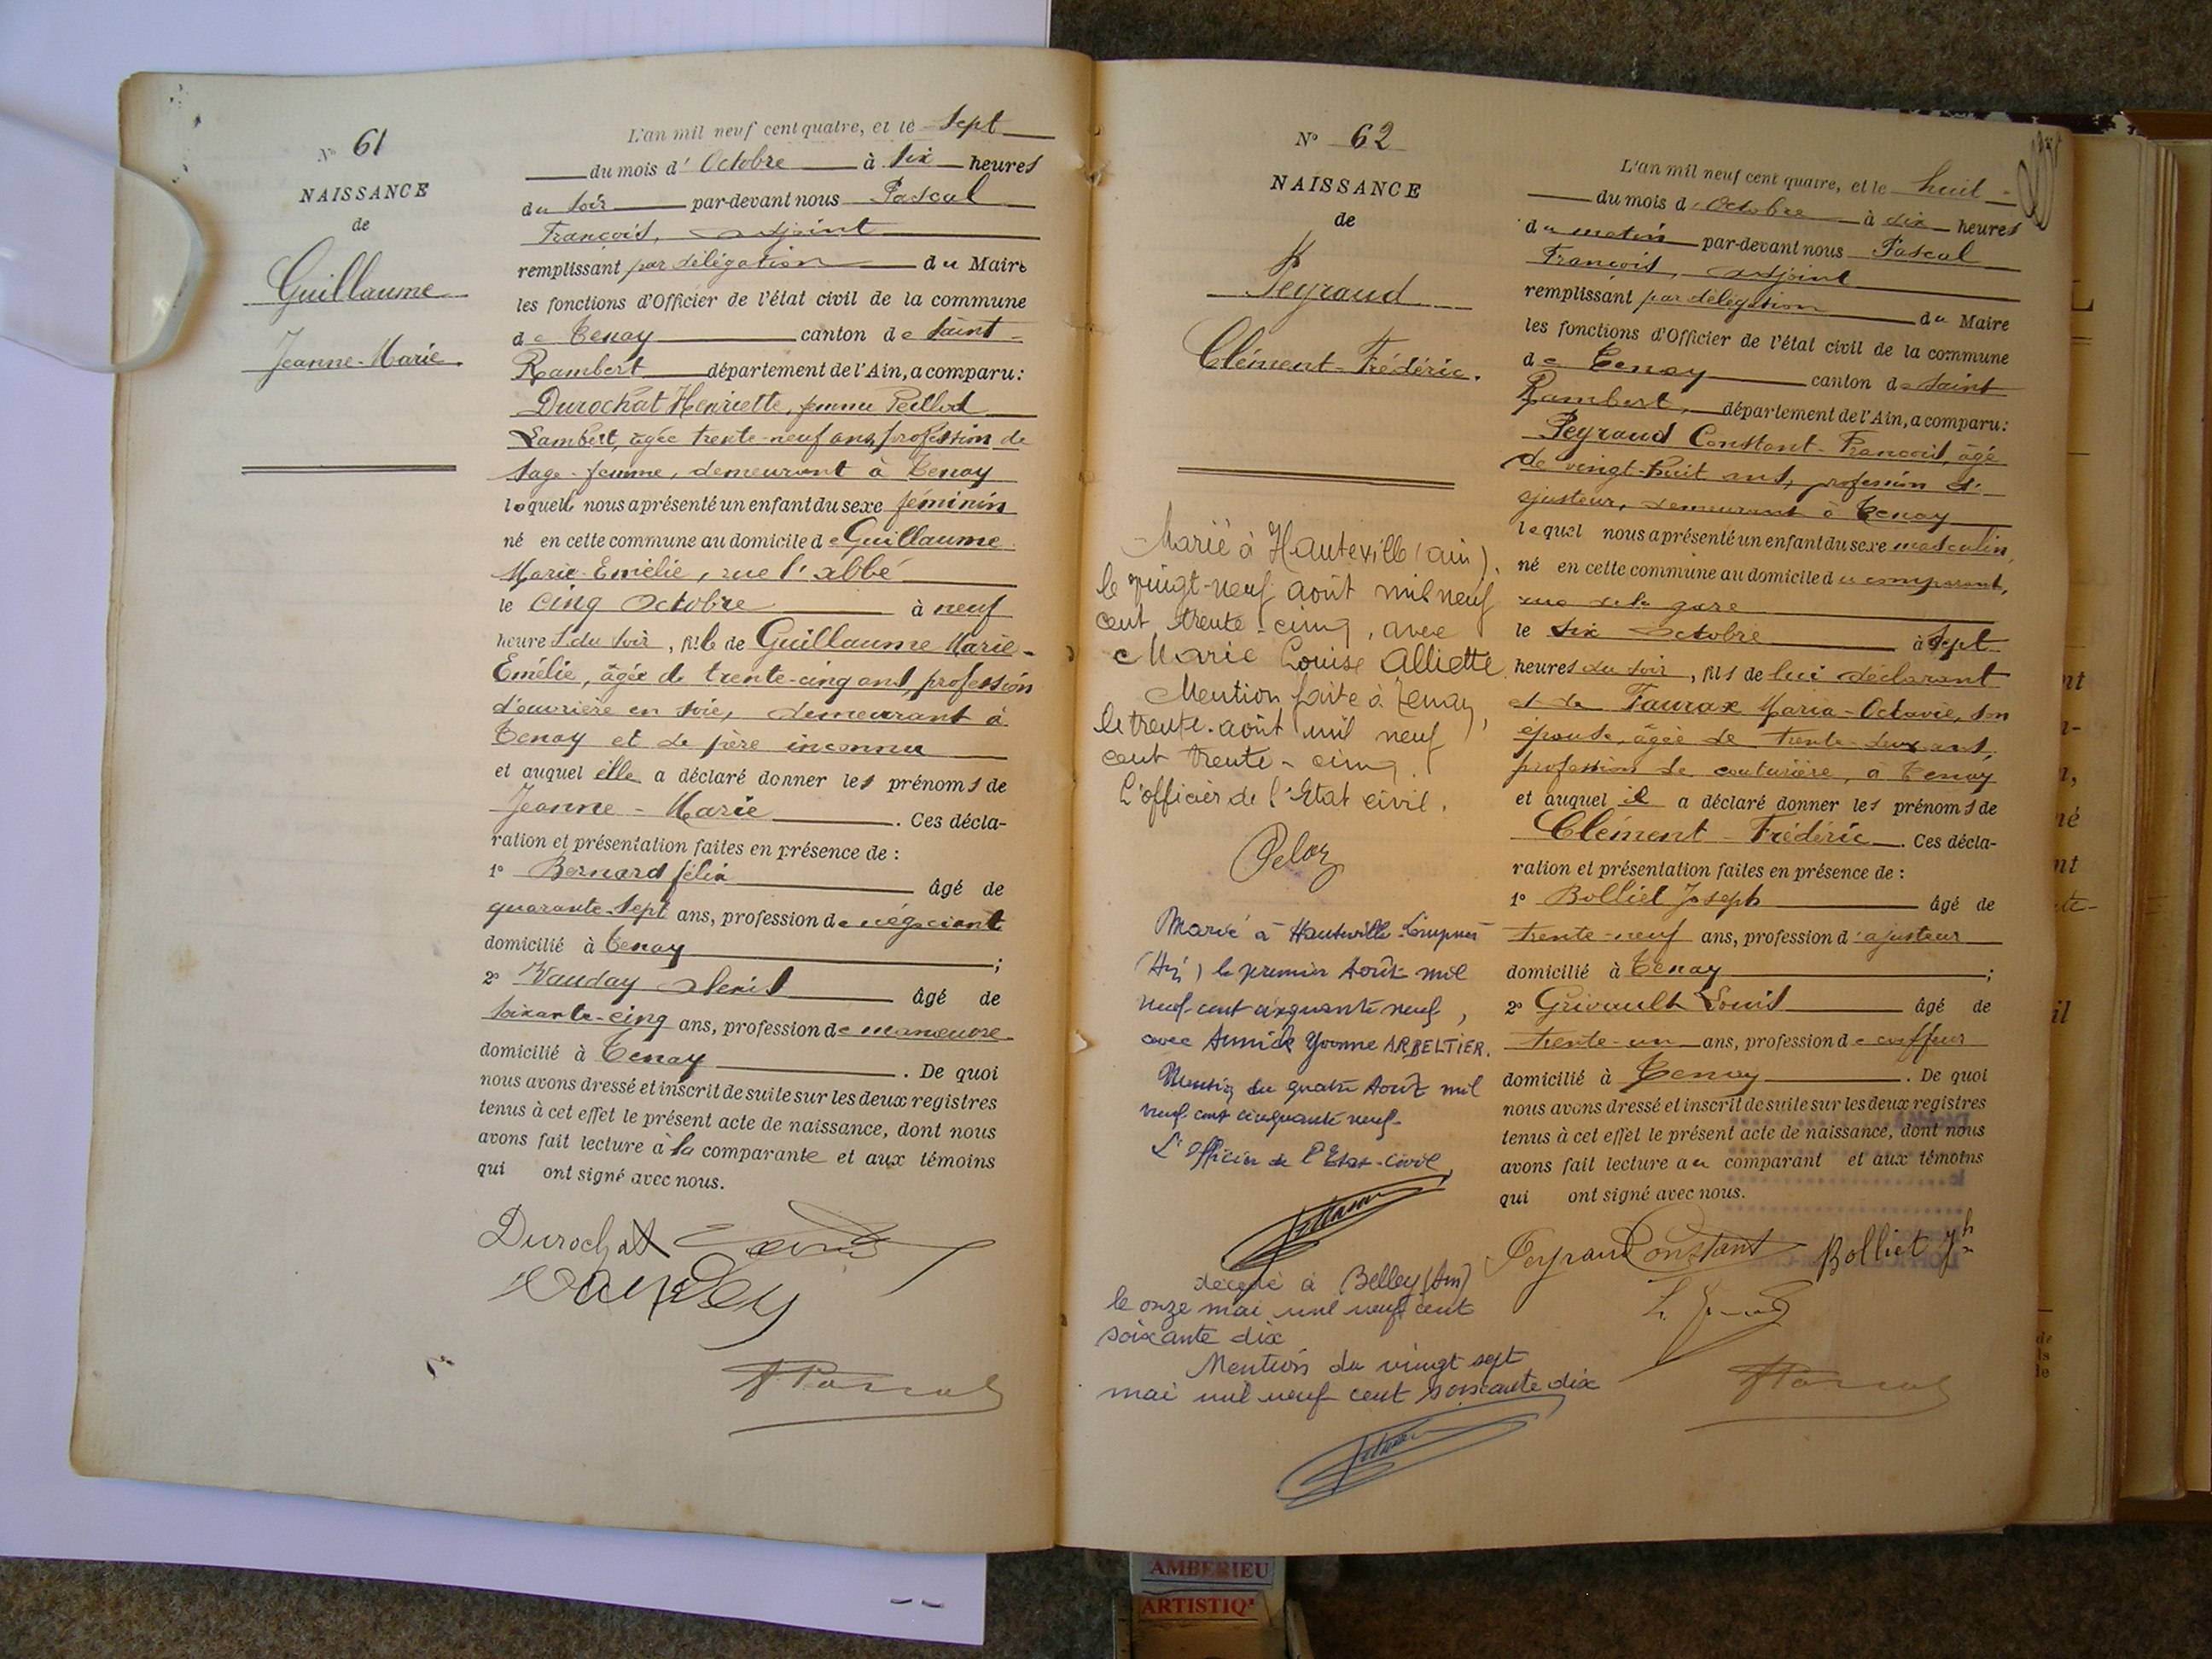 N° 61
NAISSANCE
de
Guillaume
Jeanne-Marie
L'an mil neuf cent quatre, et le sept
du mois d'Octobre à six heures
du soir par-devant nous Pascal
François, adjoint
remplissant par délégation du Maire
les fonctions d'Officier de l'état civil de la commune
de Tenay canton de Saint-
Rambert département de l'Ain, a comparu:
Durochat Henriette, femme Peillod
Lambert, âgée trente-neuf ans, profession de
sage-femme, demeurant à Tenay
laquelle nous a présenté un enfant du sexe féminin
né en cette commune au domicile de Guillaume
Marie-Emélie, rue l'abbé
le cinq Octobre à neuf
heures du soir, fille de Guillaume Marie-
Emélie, âgée de trente-cinq ans, profession
d'ouvrière en soie, demeurant à
Tenay et de père inconnu
et auquel elle a déclaré donner les prénoms de
Jeanne-Marie. Ces décla-
ration et présentation faites en présence de :
1° Bernard félix âgé de
quarante-sept ans, profession de négociant
domicilié à Tenay ;
2° Vauday Alexis âgé de
soixante-cinq ans, profession de manœuvre
domicilié à Tenay. De quoi
nous avons dressé et inscrit de suite sur les deux registres
tenus à cet effet le présent acte de naissance, dont nous
avons fait lecture à la comparante et aux témoins
qui ont signé avec nous.
Durochat
Vauday
F. Pascal
N° 62
NAISSANCE
de
Peyraud
Clément-Frédéric.
Marié à Hauteville (ain),
le vingt-neuf août mil neuf
cent trente-cinq, avec
Marie Louise Alliette.
Mention faite à Tenay,
le trente août mil neuf
cent trente-cinq.
L'officier de l'Etat civil.
Marié à Hauteville-Lompnes
(Ain) le premier Août mil
neuf cent cinquante neuf,
avec Annick Yvonne ARBELTIER.
Mention du quatre Août mil
neuf cent cinquante neuf.
L'Officier de l'Etat-Civil,
décédé à Belley (Ain)
le onze mai mil neuf cent
soixante dix
Mention du vingt sept
mai mil neuf cent soixante dix
L'an mil neuf cent quatre, et le huit
du mois d'Octobre à dix heures
du matin par-devant nous Pascal
François, adjoint
remplissant par délégation du Maire
les fonctions d'Officier de l'état civil de la commune
de Tenay canton de Saint
Rambert, département de l'Ain, a comparu:
Peyraud Constant-François, âgé
de vingt-huit ans, profession d'
ajusteur, demeurant à Tenay
lequel nous a présenté un enfant du sexe masculin
né en cette commune au domicile du comparant,
rue de la gare
le six Octobre à sept
heures du soir, fils de lui déclarant
et de Faurax Maria-Octavie, son
épouse, âgée de trente-deux ans,
profession de couturière, à Tenay
et auquel il a déclaré donner les prénoms de
Clément-Frédéric. Ces décla-
ration et présentation faites en présence de :
1° Bolliet Joseph âgé de
trente-neuf ans, profession d'ajusteur
domicilié à Tenay ;
2° Grivault Louis âgé de
trente-un ans, profession de coiffeur
domicilié à Tenay. De quoi
nous avons dressé et inscrit de suite sur les deux registres
tenus à cet effet le présent acte de naissance, dont nous
avons fait lecture au comparant et aux témoins
qui ont signé avec nous.
Peyraud Constant Bolliet Jh
F Pascal
AMBERIEU
ARTISTIQ